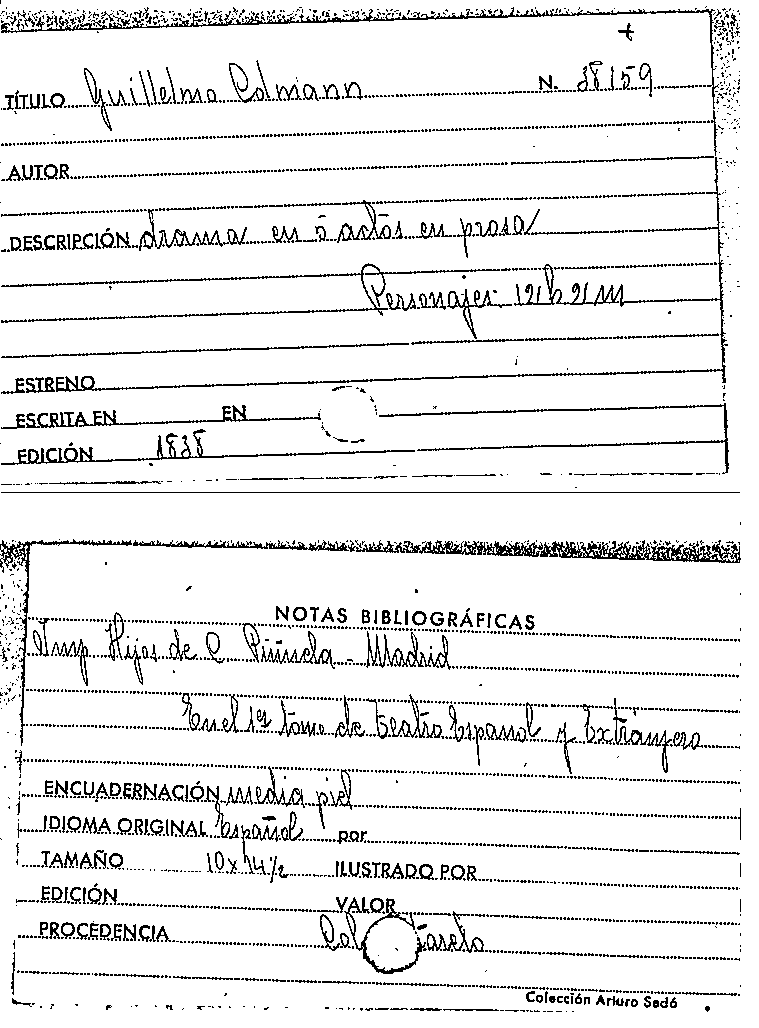 TÍTULO Guillelmo Colmann N. 38159
AUTOR
DESCRIPCIÓN drama en 5 actos en prosa
Personajes: 12 h 2 m
ESTRENO
ESCRITA EN EN
EDICIÓN 1838
NOTAS BIBLIOGRÁFICAS
Imp Hijos de C Piñuela - Madrid
En el 1er tomo de Teatro Español y Extranjero
ENCUADERNACIÓN media piel
IDIOMA ORIGINAL Español por
TAMAÑO 10 x 14 1/2 ILUSTRADO POR
EDICIÓN VALOR
PROCEDENCIA Col
Colección Arturo Sedó